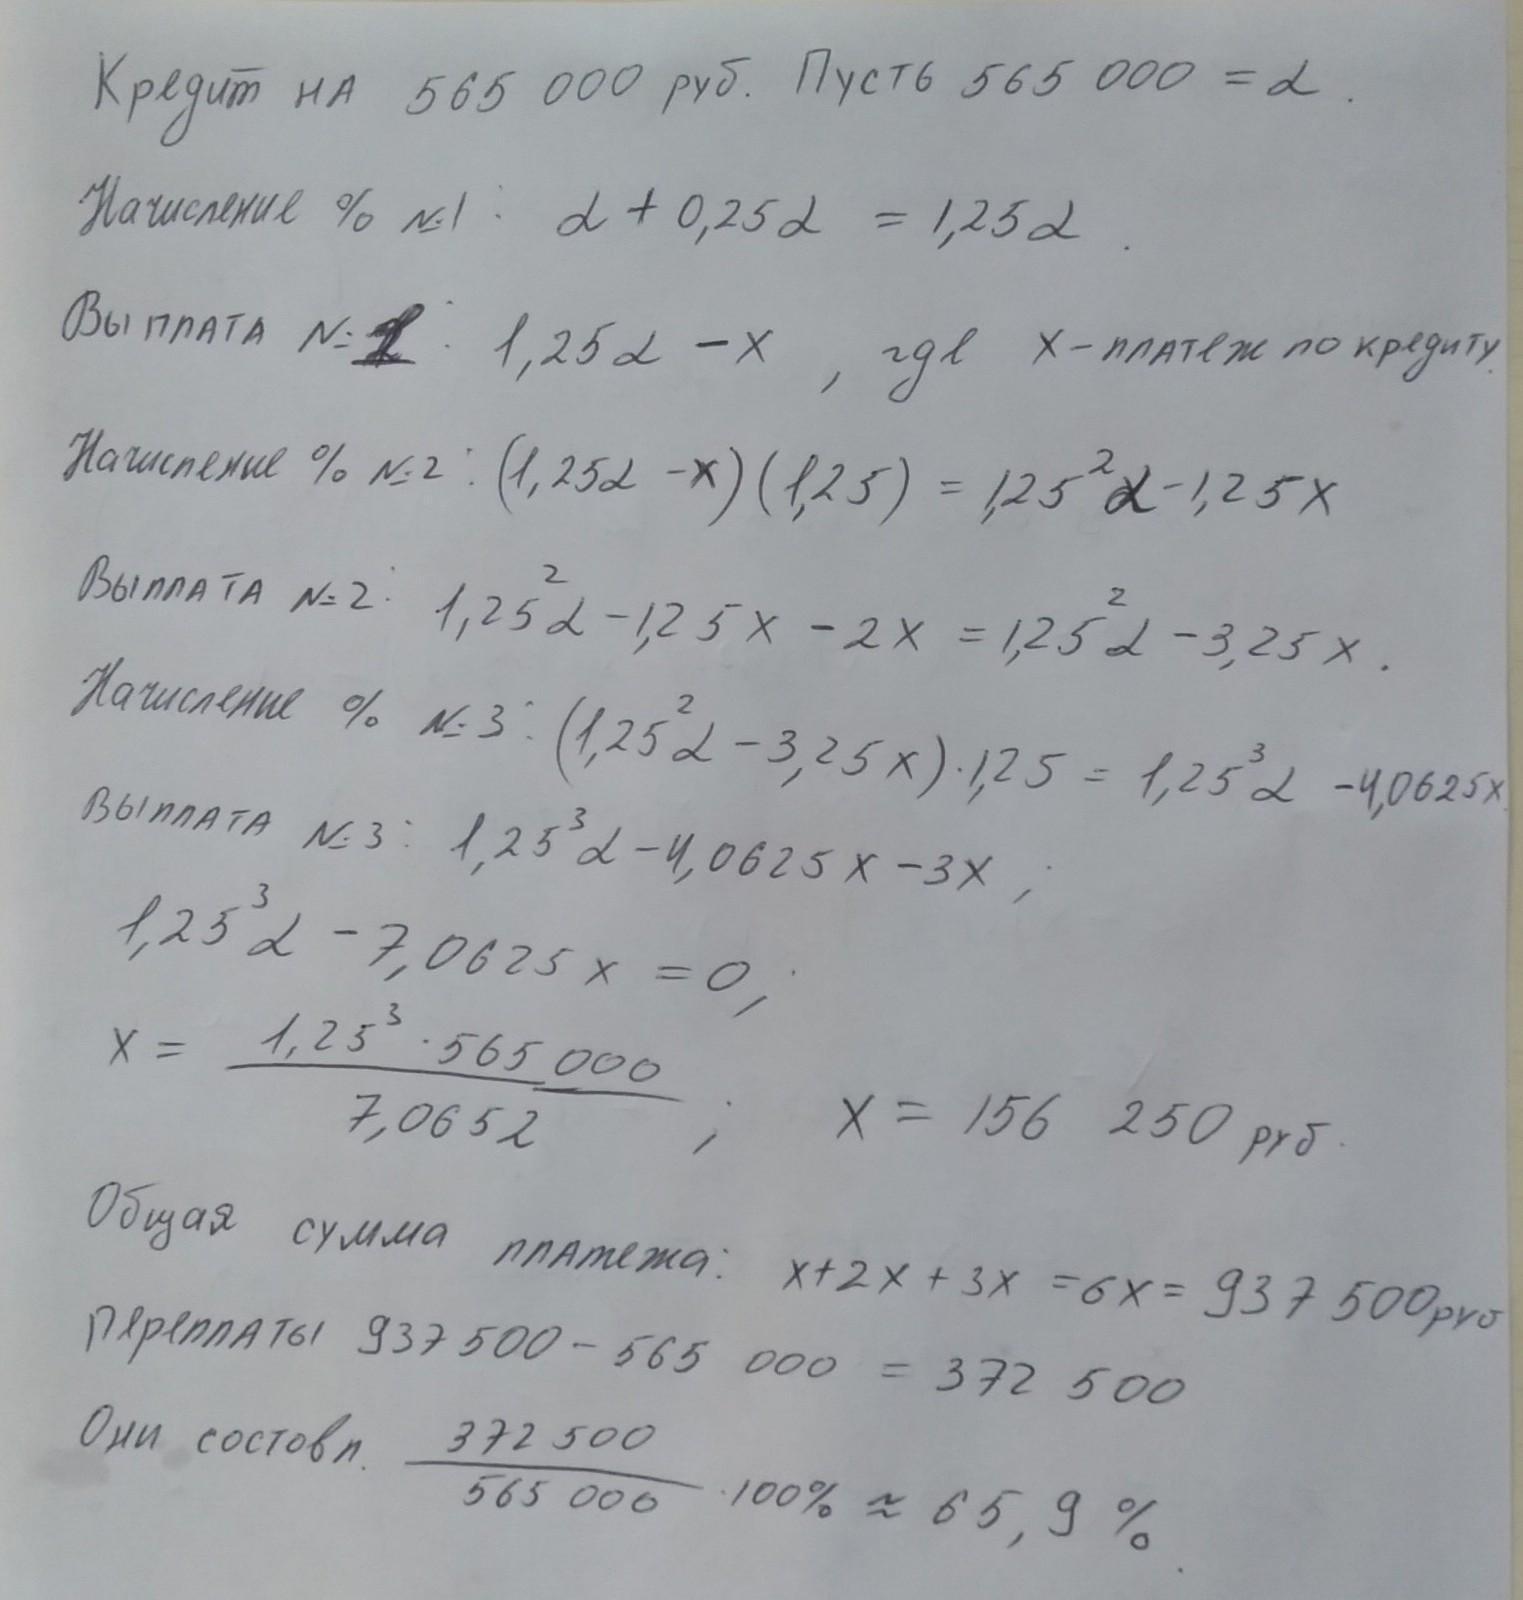 Кредит на 565 000 руб. Пусть 565 000 = α.
Начисление % №1: α + 0,25α = 1,25α.
Выплата №1: 1,25α - x, где x - платеж по кредиту.
Начисление % №2: (1,25α - x)(1,25) = 1,25²α - 1,25x
Выплата №2: 1,25²α - 1,25x - 2x = 1,25²α - 3,25x.
Начисление % №3: (1,25²α - 3,25x)·1,25 = 1,25³α - 4,0625x
Выплата №3: 1,25³α - 4,0625x - 3x;
1,25³α - 7,0625x = 0;
x = 1,25³·565 000 / 7,0652; x = 156 250 руб.
Общая сумма платежа: x + 2x + 3x = 6x = 937 500 руб
Переплаты 937 500 - 565 000 = 372 500
Они составл. 372 500 / 565 000 · 100% ≈ 65,9 %.